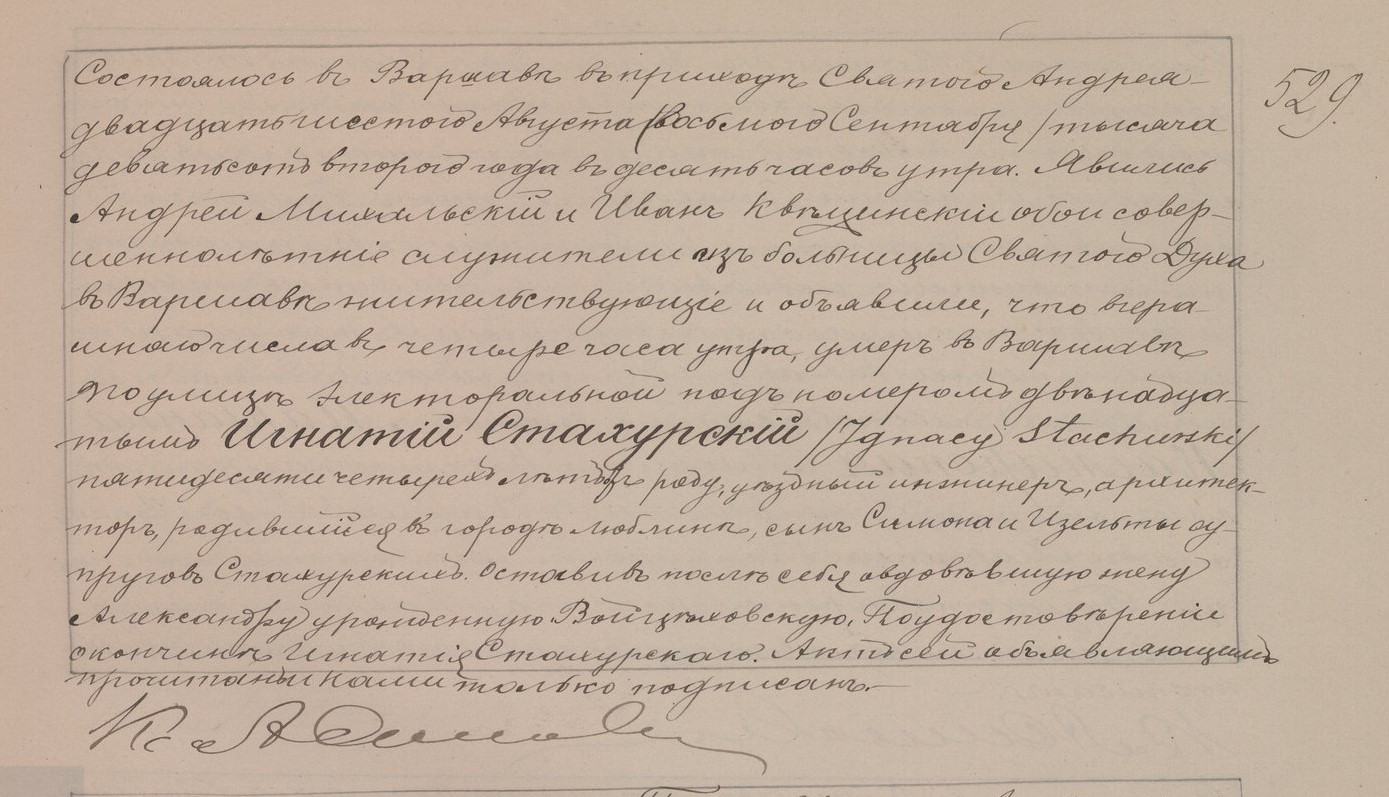 Состоялось въ Варшавѣ въ приходѣ Святого Андрея
529.
двадцать шестого Августа /восьмого Сентября/ тысяча
девятьсотъ второго года въ десять часовъ утра. Явились
Андрей Михальскій и Иванъ Квѣцинскій обои совер-
шеннолѣтніе служители изъ больницы Святого Духа
въ Варшавѣ жительствующіе и объявили, что вчера
шняго числа въ четыре часа утра, умеръ въ Варшавѣ
по улицѣ Электоральной подъ номеромъ двѣнадца-
тымъ Игнатій Стахурскій /Ignacy Stachurski/
пятидесяти четырехъ лѣтъ отъ роду, уѣздный инжинеръ, архитек-
торъ, родившійся въ городѣ Люблинѣ, сынъ Симона и Изельты су-
пруговъ Стахурскихъ. Оставивъ послѣ себя овдовѣвшую жену
Александру урожденную Войцѣховскую. По удостовѣреніи
окончинѣ Игнатія Стахурскаго. Актъ сей объявляющимъ
прочитанъ и нами только подписанъ.